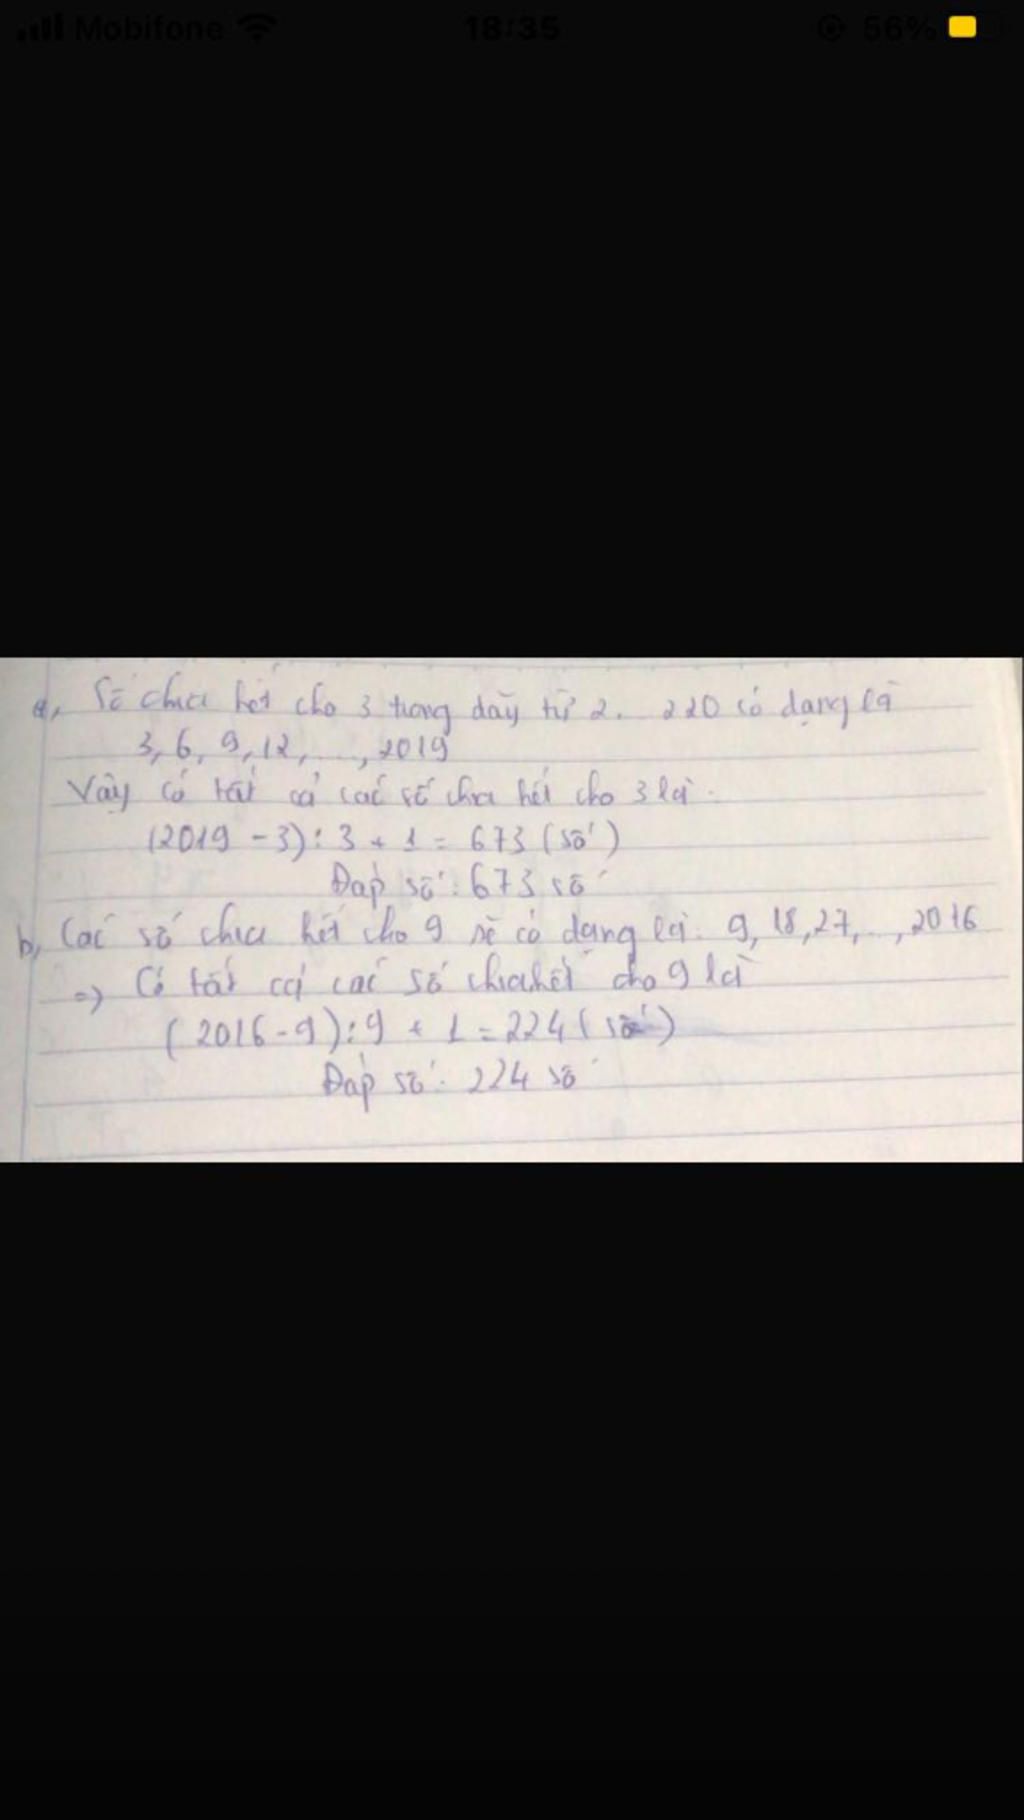 Mobifone 18:35 56%
a, Số chia hết cho 3 trong dãy từ 2. 220 có dạng là
3, 6, 9, 12, ..., 2019
Vậy có tất cả các số chia hết cho 3 là.
(2019 - 3) : 3 + 1 = 673 (số)
Đáp số : 673 số
b, Các số chia hết cho 9 sẽ có dạng là: 9, 18, 27, ..., 2016
=> Có tất cả các số chia hết cho 9 là
(2016 - 9) : 9 + 1 = 224 (số)
Đáp số : 224 số